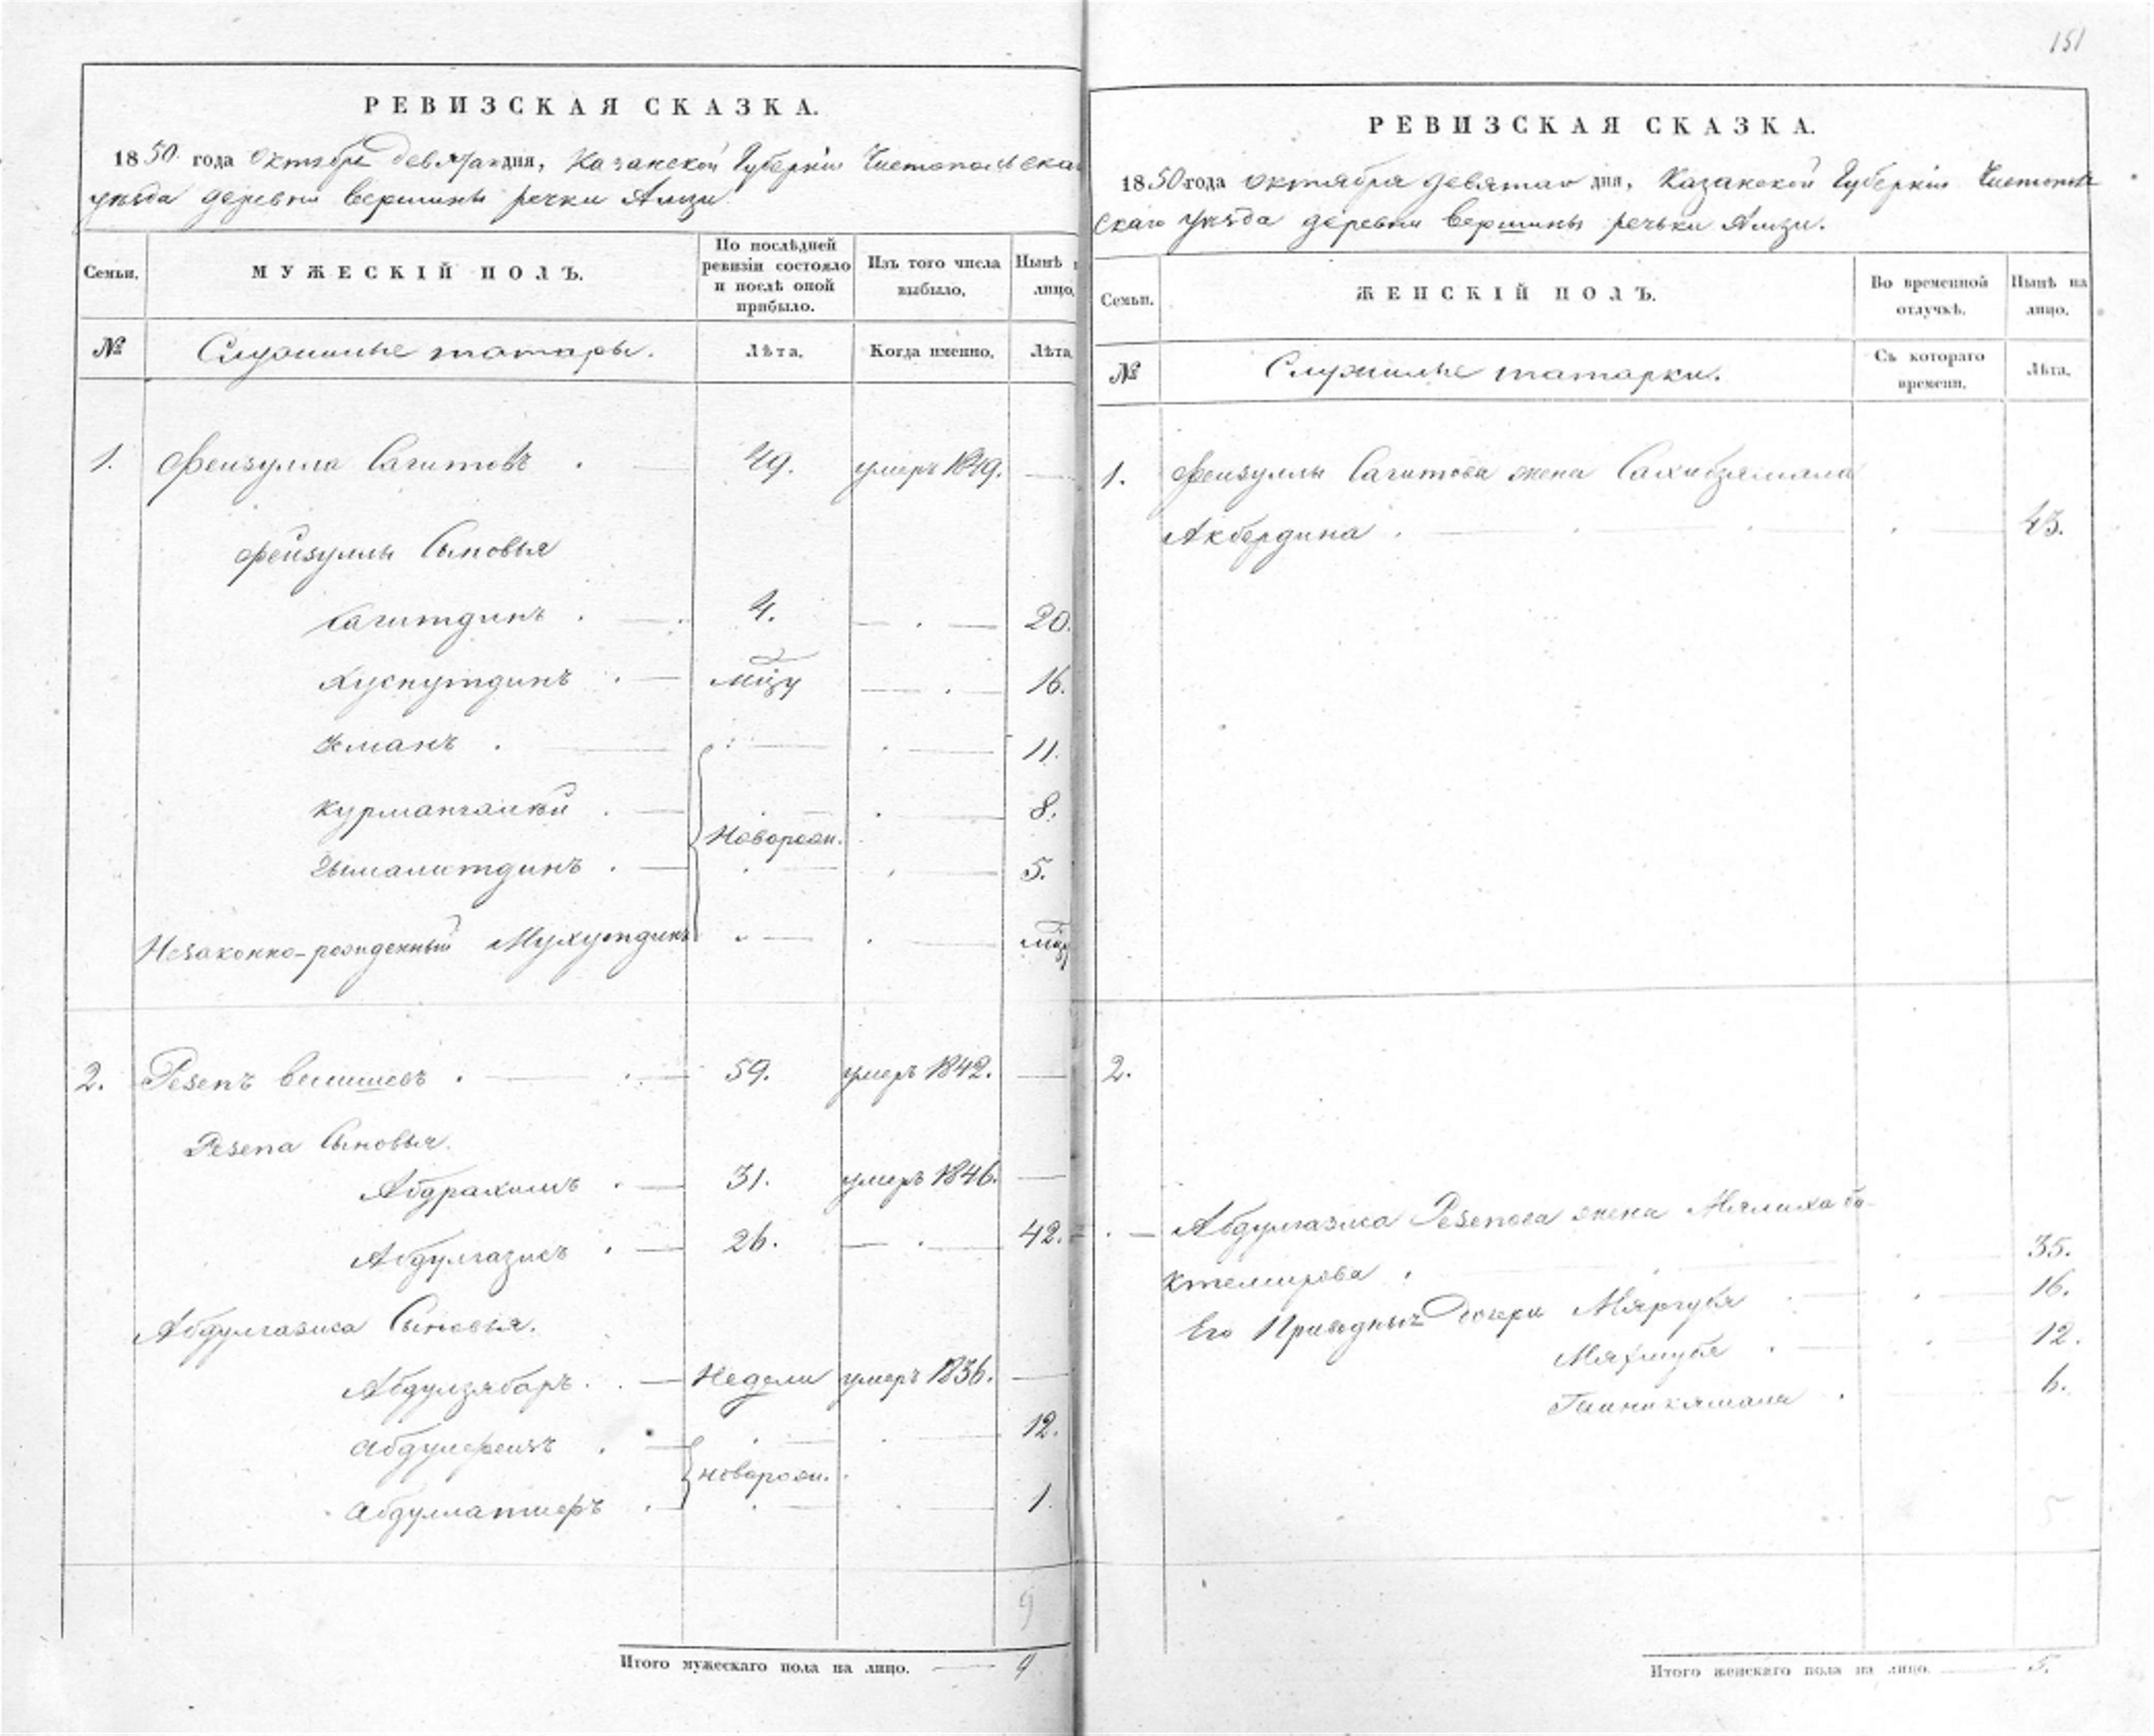 151
РЕВИЗСКАЯ СКАЗКА.
1850 года Октября девятаго дня, Казанской Губерніи Чистопольска
уѣзда деревни Вершины речки Амзи
Семьи. МУЖЕСКІЙ ПОЛЪ. По послѣдней ревизіи состояло и послѣ оной прибыло. Изъ того числа выбыло. Нынѣ лицо.
№ Служилые татары. Лѣта. Когда именно. Лѣта
1. Фейзулла Сагитовъ 49. умеръ 1849.
Фейзуллы Сыновья
Сагитдинъ 4. 20.
Хуснутдинъ 16.
Усманъ 11.
Курмангалѣй 8.
Новорож.
Зямалитдинъ 5.
Незаконно-рожденный Мухутдинъ
2. Резепъ Велишевъ 59. умеръ 1842.
Резепа Сыновья.
Абдрахимъ 31. умеръ 1846.
Абдулгазисъ 26. 42.
Абдулгазиса Сыновья.
Абдулзябаръ. Недели умеръ 1836.
Абдулфеизъ 12.
новорож.
Абдуллатифъ 1.
9
Итого мужескаго пола на лицо. 9
РЕВИЗСКАЯ СКАЗКА.
1850 года Октября девятаго дня, Казанской Губерніи Чистополь
скаго Уѣзда деревни Вершины речьки Амзи.
Семьи. ЖЕНСКІЙ ПОЛЪ. Во временной отлучкѣ. Нынѣ на лицо.
№ Служилые татарки. Съ котораго времени. Лѣта.
1. Фейзуллы Сагитова жена Сахибзямала
Акбердина 43.
2.
Абдулгазиса Резепова жена Мялиха Бе-
ктемирова 35.
Его Приводныя Дочери 16.
12.
6.
5
Итого женскаго пола на лицо. 5.